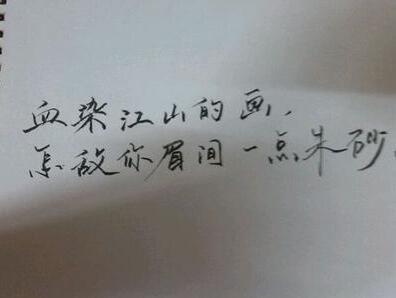 血染江山的画,
怎敌你眉间一点朱砂.